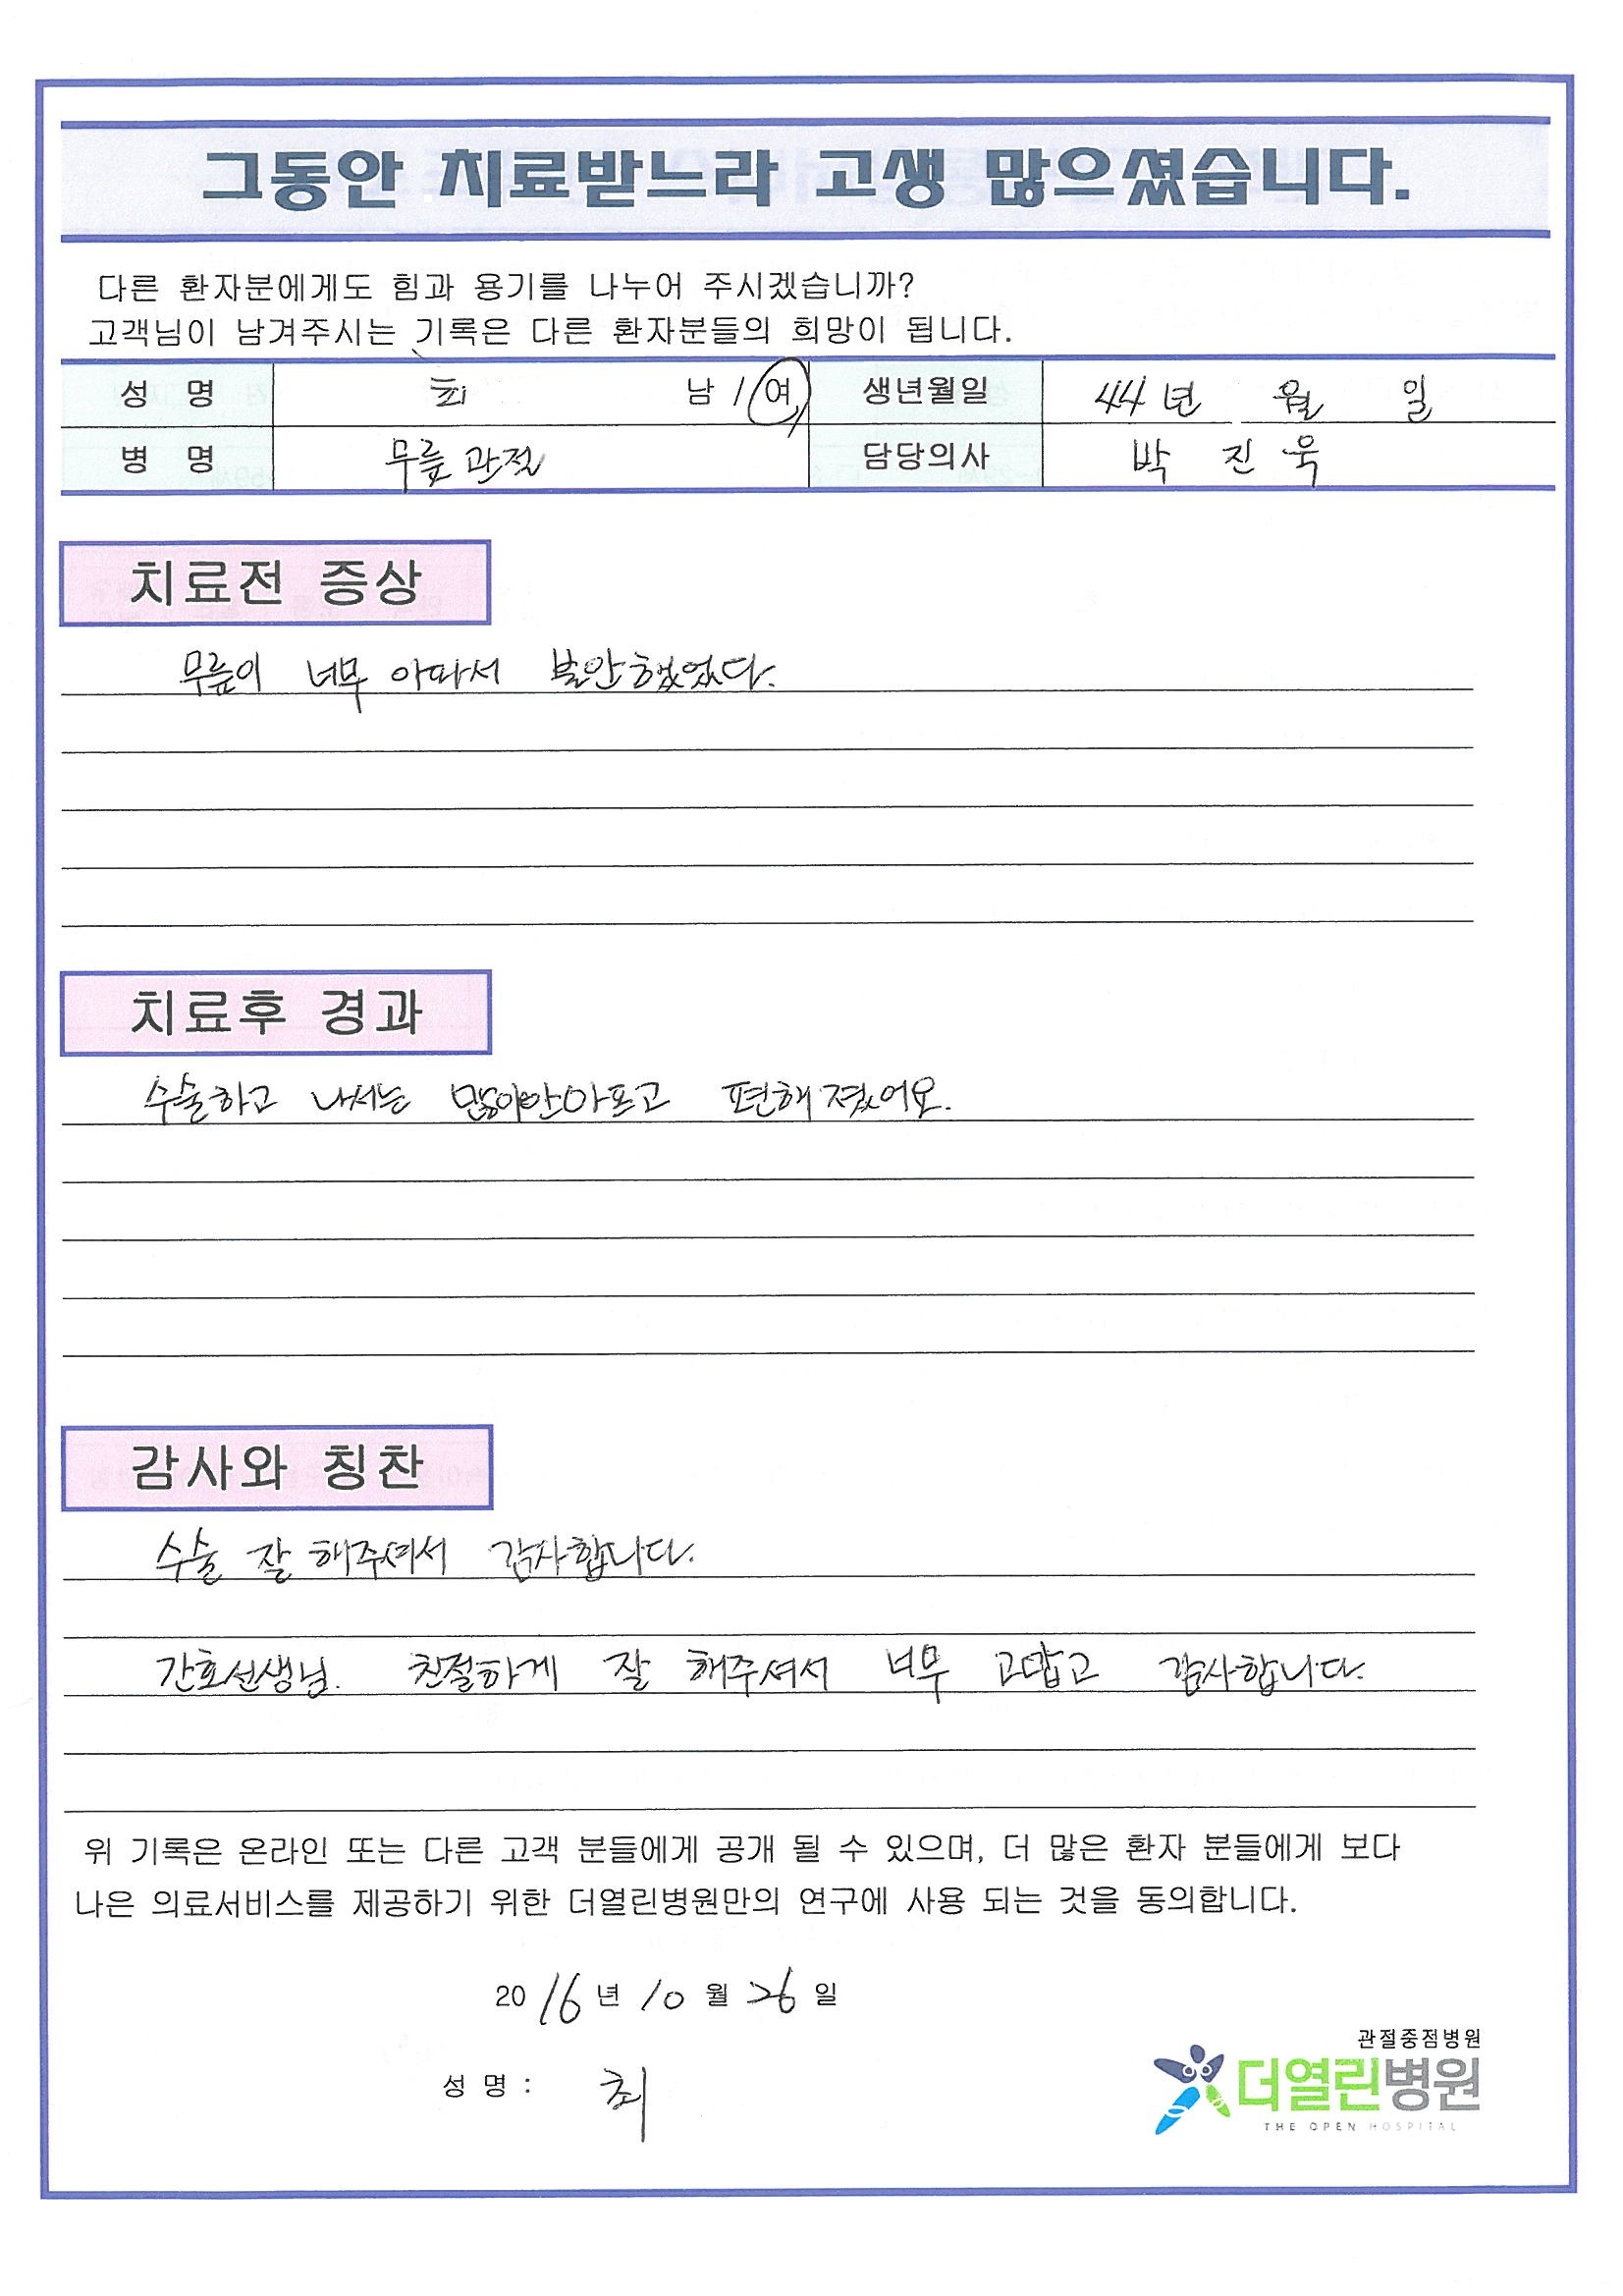 그동안 치료받느라 고생 많으셨습니다.
다른 환자분에게도 힘과 용기를 나누어 주시겠습니까?
고객님이 남겨주시는 기록은 다른 환자분들의 희망이 됩니다.
성 명 최 남 / 여 생년월일 44년 월 일
병 명 무릎관절 담당의사 박 진 욱
치료전 증상
무릎이 너무 아파서 불안했었다.
치료후 경과
수술하고 나서는 많이안아프고 편해졌어요.
감사와 칭찬
수술 잘 해주셔서 감사합니다.
간호선생님. 친절하게 잘 해주셔서 너무 고맙고 감사합니다.
위 기록은 온라인 또는 다른 고객 분들에게 공개 될 수 있으며, 더 많은 환자 분들에게 보다
나은 의료서비스를 제공하기 위한 더열린병원만의 연구에 사용 되는 것을 동의합니다.
2016년 10월 26일
성 명 : 최
관절중점병원
더열린병원
THE OPEN HOSPITAL